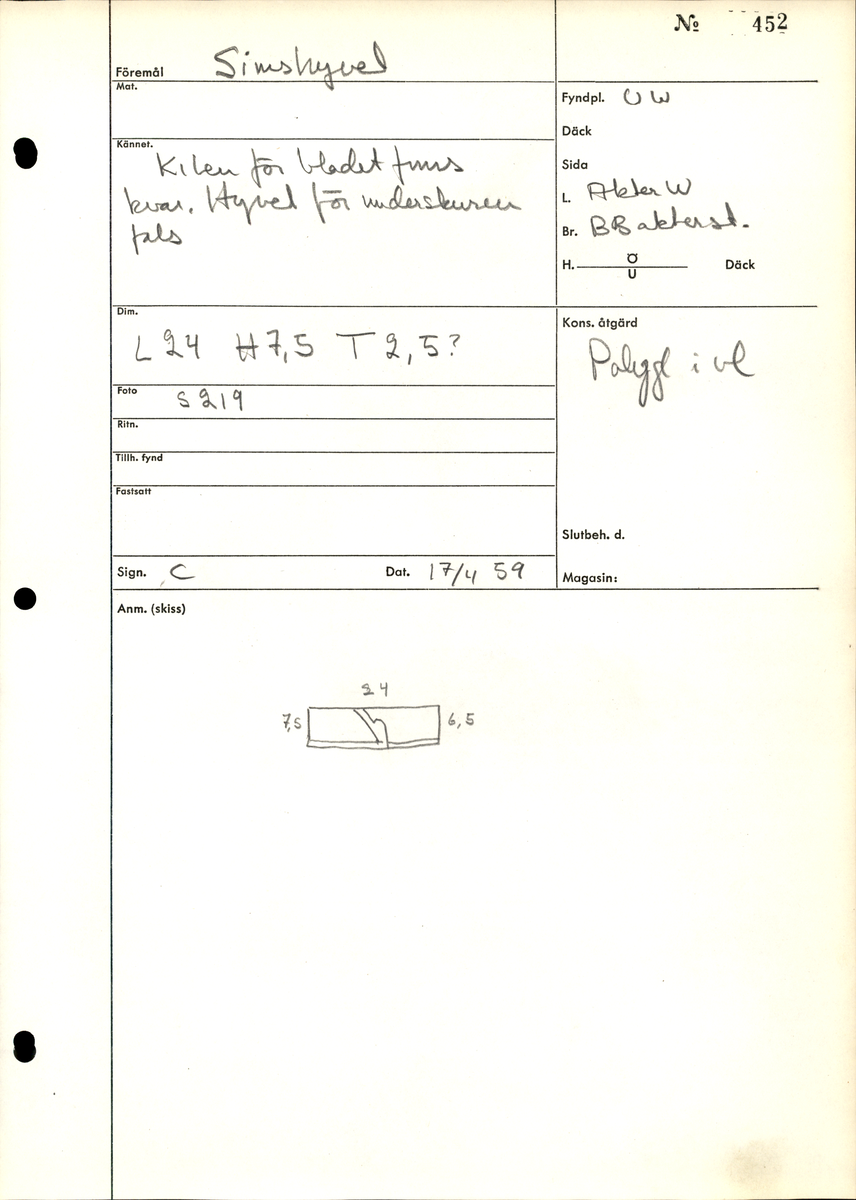 № 452
Föremål Simshyvel
Mat.
Fyndpl. U W
Däck
Kännet.
Kilen för bladet finns
kvar. Hyvel för underskuren
fals
Sida
L. Akter W
Br. BB akterst.
H. Ö Däck
U
Dim.
L 24 H 7,5 T 2,5?
Kons. åtgärd
Polygl i vl
Foto S 219
Ritn.
Tillh. fynd
Fastsatt
Slutbeh. d.
Sign. C Dat. 17/4 59
Magasin:
Anm. (skiss)
24
7,5 6,5